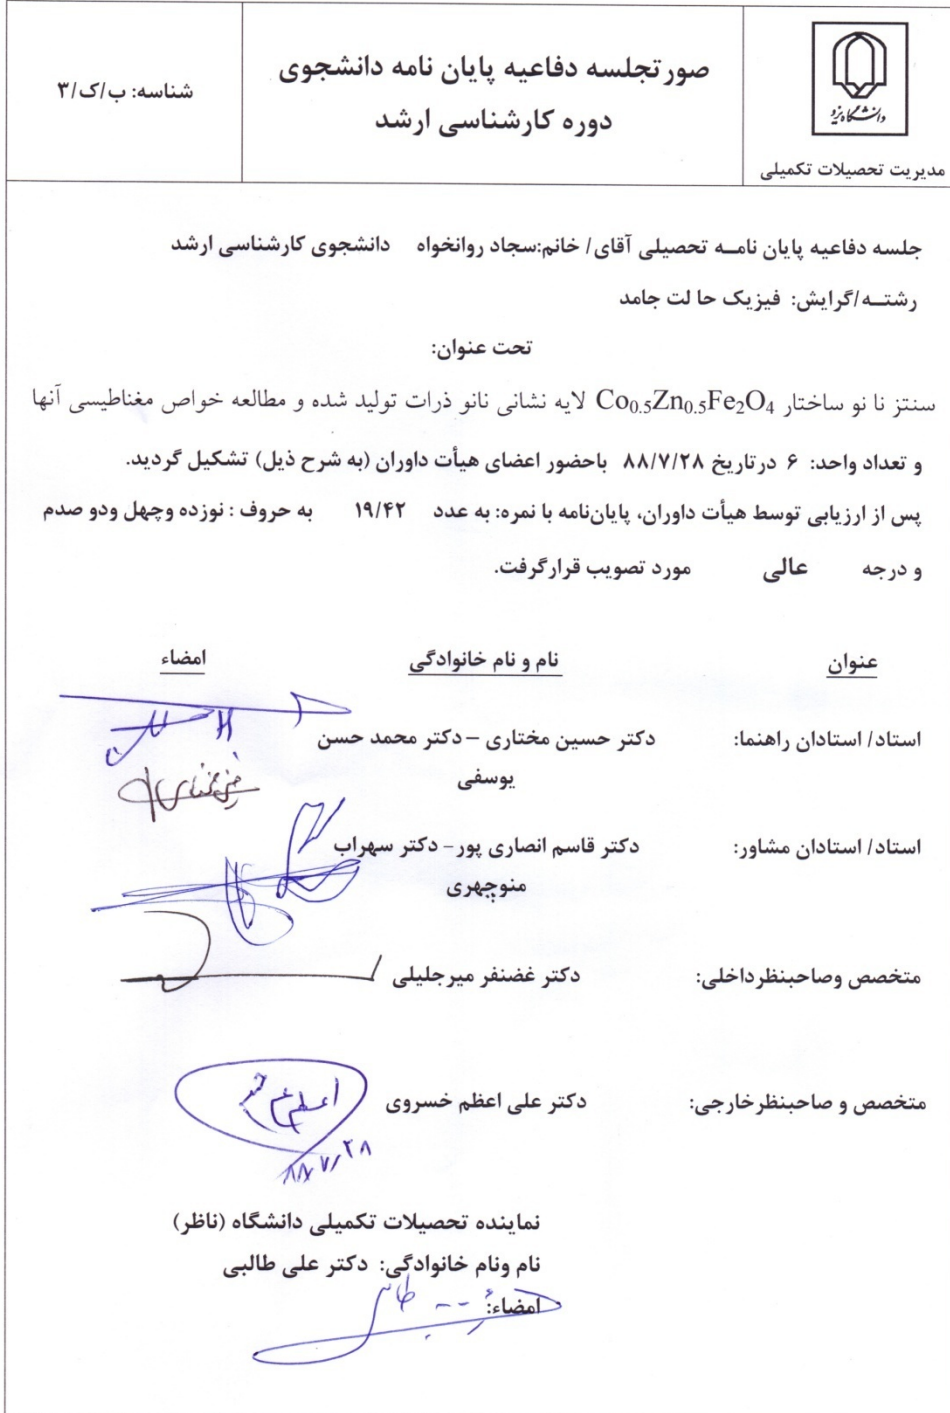 صورتجلسه دفاعیه پایان نامه دانشجوی
دوره کارشناسی ارشد
شناسه: ب/ک/۳
دانشگاه یزد
مدیریت تحصیلات تکمیلی
جلسه دفاعیه پایان نامــه تحصیلی آقای/ خانم:سجاد روانخواه دانشجوی کارشناسی ارشد
رشتــه/گرایش: فیزیک حا لت جامد
تحت عنوان:
سنتز نا نو ساختار Co0.5Zn0.5Fe2O4 لایه نشانی نانو ذرات تولید شده و مطالعه خواص مغناطیسی آنها
و تعداد واحد: ۶ درتاریخ ۸۸/۷/۲۸ باحضور اعضای هیأت داوران (به شرح ذیل) تشکیل گردید.
پس از ارزیابی توسط هیأت داوران، پایان‌نامه با نمره: به عدد ۱۹/۴۲ به حروف : نوزده وچهل ودو صدم
و درجه عالی مورد تصویب قرارگرفت.
عنوان نام و نام خانوادگی امضاء
استاد/ استادان راهنما: دکتر حسین مختاری – دکتر محمد حسن
یوسفی
استاد/ استادان مشاور: دکتر قاسم انصاری پور- دکتر سهراب
منوچهری
متخصص وصاحبنظرداخلی: دکتر غضنفر میرجلیلی
متخصص و صاحبنظرخارجی: دکتر علی اعظم خسروی
۸۸/۷/۲۸
نماینده تحصیلات تکمیلی دانشگاه (ناظر)
نام ونام خانوادگی: دکتر علی طالبی
امضاء: